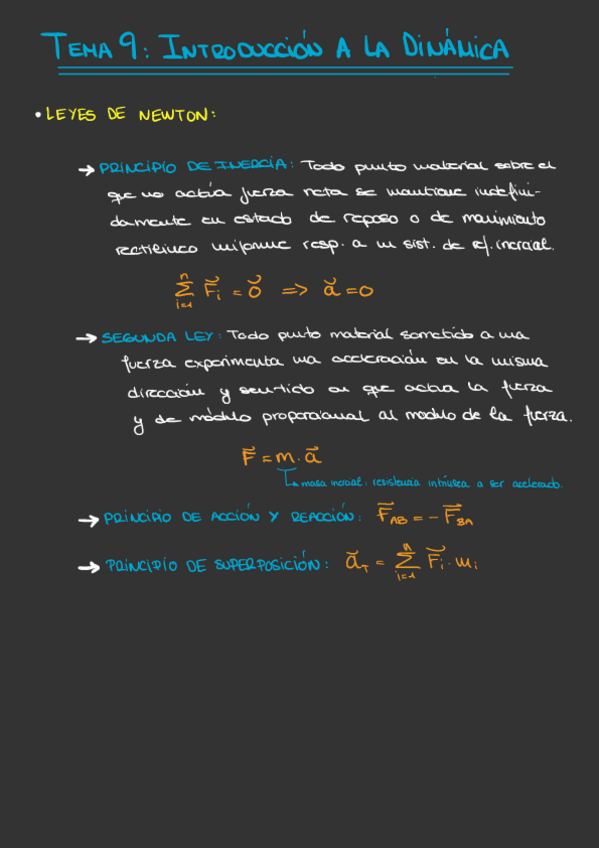 TEMA 9: INTRODUCCIÓN A LA DINÁMICA
• LEYES DE NEWTON:
→ PRINCIPIO DE INERCIA: Todo punto material sobre el
que no actúa fuerza neta se mantiene indefini-
damente en estado de reposo o de movimiento
rectilíneo uniforme resp. a un sist. de ref. inercial.
n
∑ F⃗i = 0⃗ => a⃗ = 0
i=1
→ SEGUNDA LEY: Todo punto material sometido a una
fuerza experimenta una aceleración en la misma
dirección y sentido en que actúa la fuerza
y de módulo proporcional al modulo de la fuerza.
F⃗ = m · a⃗
↳ masa inercial: resistencia intrínseca a ser acelerado.
→ PRINCIPIO DE ACCIÓN Y REACCIÓN: F⃗AB = - F⃗BA
→ PRINCIPIO DE SUPERPOSICIÓN: a⃗T = n∑i=1 F⃗i · mi